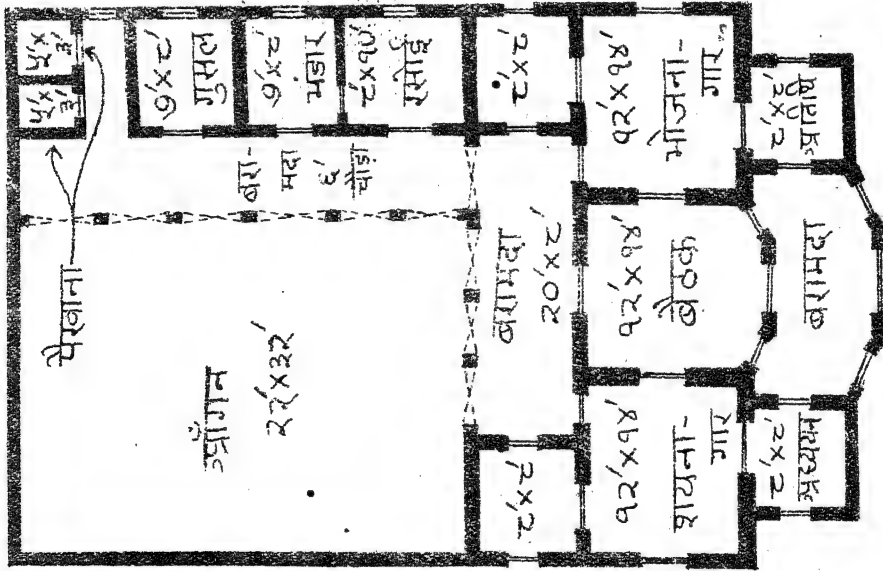 ५'x
३'
५'x
३'
पैखाना
७'x८'
गुसल
७'x८'
भंडार
८'x१०'
रसोई
८'x८'
१२'x१४'
भोजना-
गार
८'x८'
अतिथि
बरा-
मदा
६'
चौड़ा
आँगन
२२'x३२'
बरामदा
२०'x८'
१२'x१४'
बैठक
बरामदा
८'x८'
१२'x१४'
शयना-
गार
८'x८'
अध्ययन